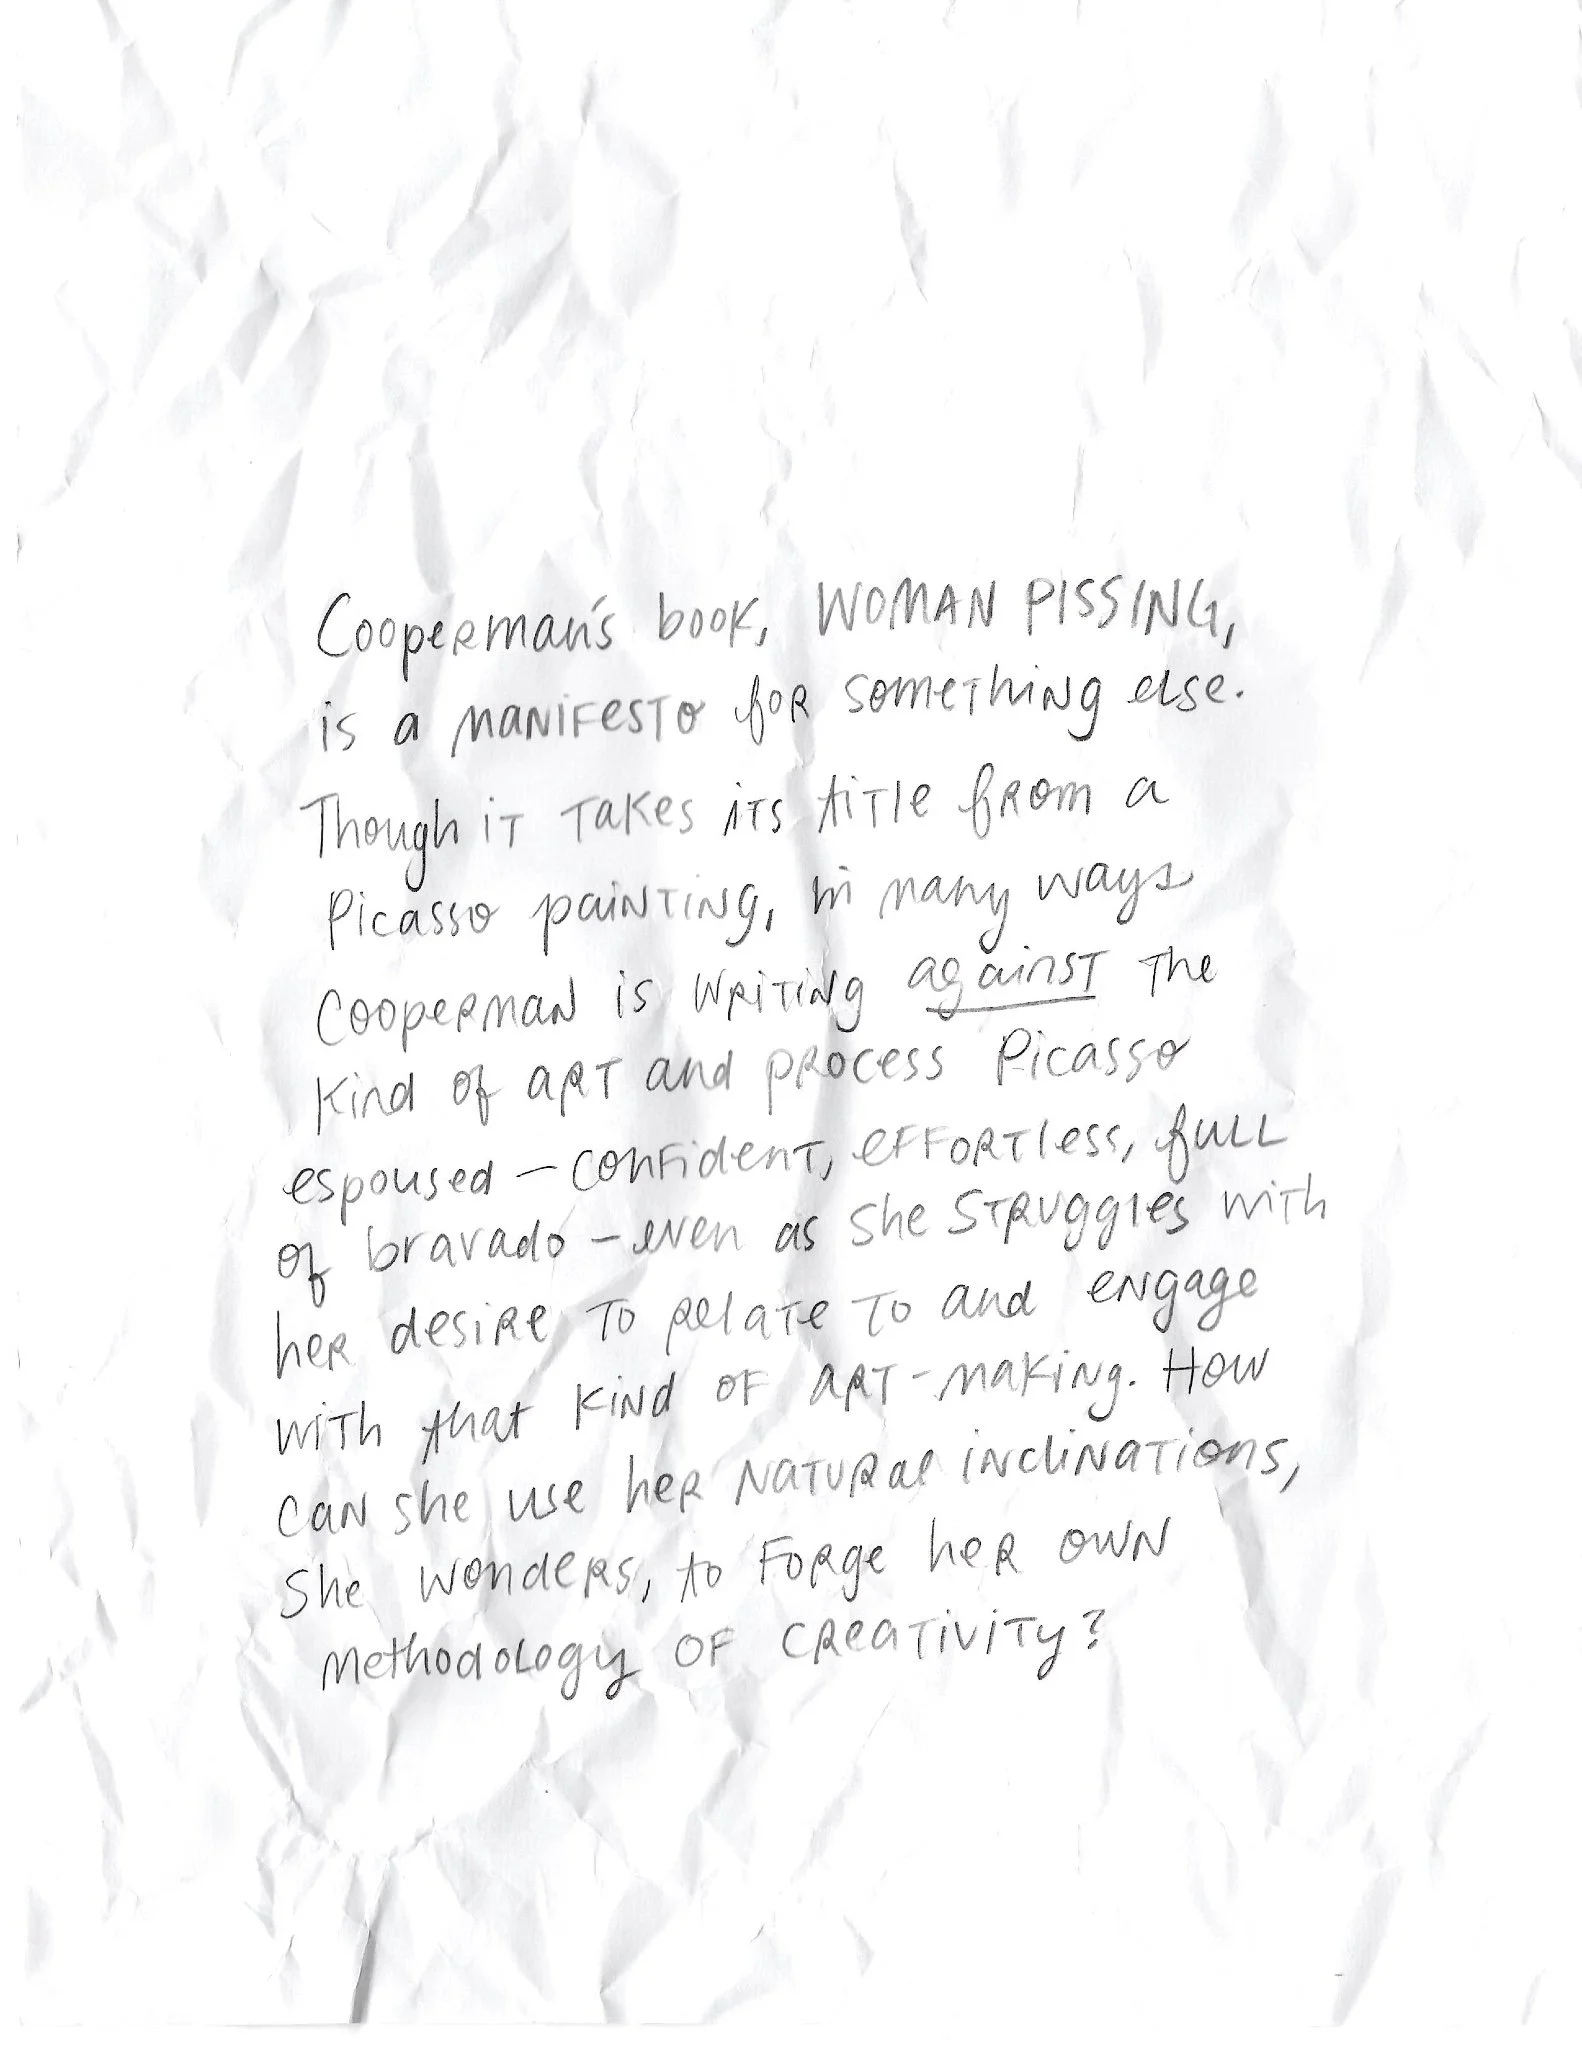 Cooperman's book, WOMAN PISSING,
is a manifesto for something else.
Though it takes its title from a
Picasso painting, in many ways
Cooperman is writing against the
kind of art and process Picasso
espoused – confident, effortless, full
of bravado – even as she struggles with
her desire to relate to and engage
with that kind of art-making. How
can she use her natural inclinations,
she wonders, to forge her own
methodology of creativity?